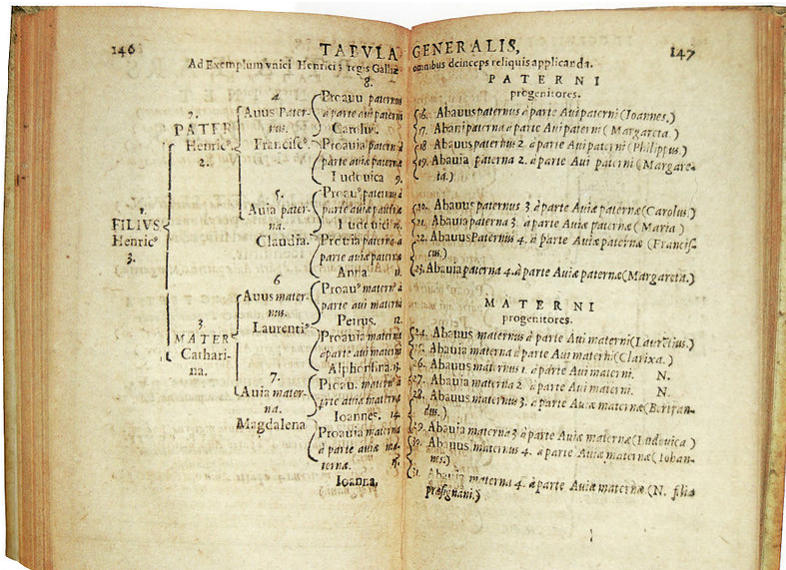 146
TABULA GENERALIS,
147
Ad Exemplum unici Henrici 3 regis Galliæ omnibus deinceps reliquis applicanda.
1.
FILIVS
Henric⁹
3.
2.
PATER
Henric⁹.
2.
3
MATER
Cathari-
na.
4
Avus Pater-
nus.
Francisc⁹.
5.
Avia pater-
na.
Claudia.
6
Avus mater-
nus.
Laurenti⁹
7.
Avia mater-
na.
Magdalena
8.
Proavu paternus
à parte avi paterni
Carolus.
Proavia paterna
parte avi paterni
Ludovica 9.
Proau⁹ paternus à
parte aviæ paternæ
Ludovic
Proavia paterna à
parte aviæ paternæ
Anna 11.
Proau⁹ matern⁹ à
parte avi materni
Petrus. 12.
Proavia materna
à parte avi materni
Alphonsina 13.
Proau. matern⁹ à
parte aviæ maternæ
Ioannes. 14.
Proavia materna
à parte aviæ ma-
ternæ. 15.
Ioanna.
PATERNI
progenitores.
16. Abavus paternus à parte Avi paterni (Ioannes.)
17. Abavi paterna à parte Avi paterni (Margareta.)
18 Abavus paternus 2. à parte Avi paterni (Philippus.)
19. Abavia paterna 2. à parte Avi paterni (Margare-
ta.)
20. Abavus paternus 3 à parte Aviæ paternæ (Carolus.)
21. Abavia paterna 3. à parte Aviæ paternæ (Maria)
22. Abavus Paternus 4. à parte Aviæ paternæ (Francis-
cus.)
23. Abavia paterna 4. à parte Aviæ paternæ (Margareta.)
MATERNI
progenitores.
24. Abavus maternus à parte Avi materni (Laurētius.)
25. Abavia materna à parte Avi materni (Clarixa.)
26. Abavus maternus 1. à parte Avi materni. N.
27. Abavia materna 2 à parte Avi materni. N.
28. Abavus maternus 3. à parte Aviæ maternæ (Bertran-
dus.)
29. Abavia materna 3 à parte Aviæ maternæ (Ludovica)
30. Abavus maternus 4. à parte Aviæ maternæ (Iohan-
nes.)
31. Abavia materna 4. à parte Aviæ maternæ (N. filia
præsignani.)